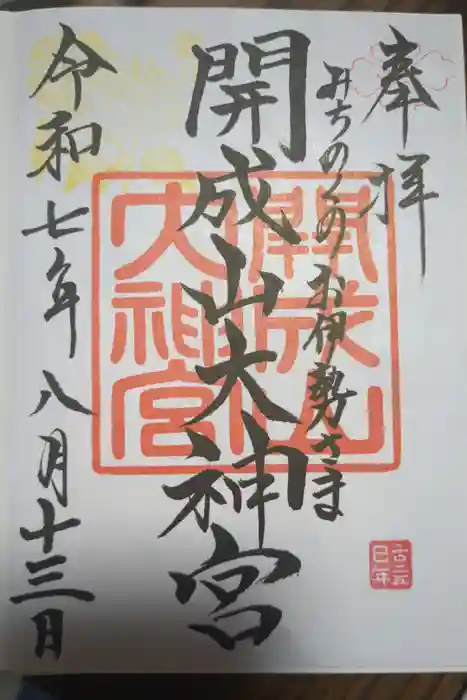 奉拝
みちのくのお伊勢さま
開成山大神宮
令和七年八月十三日
開成山
大神宮
巳年